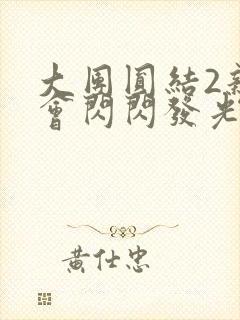 大團圓結2新
會閃閃發光
黃仕忠